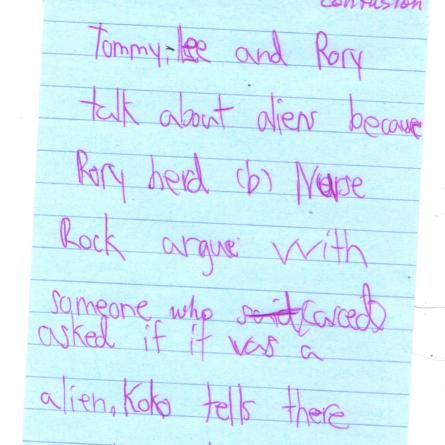 confusion
Tommy, Lee and Rory
talk about aliens because
Rory herd (b) Nurse
Rock argue with
someone who said
asked if it was a
alien, Koko tells there